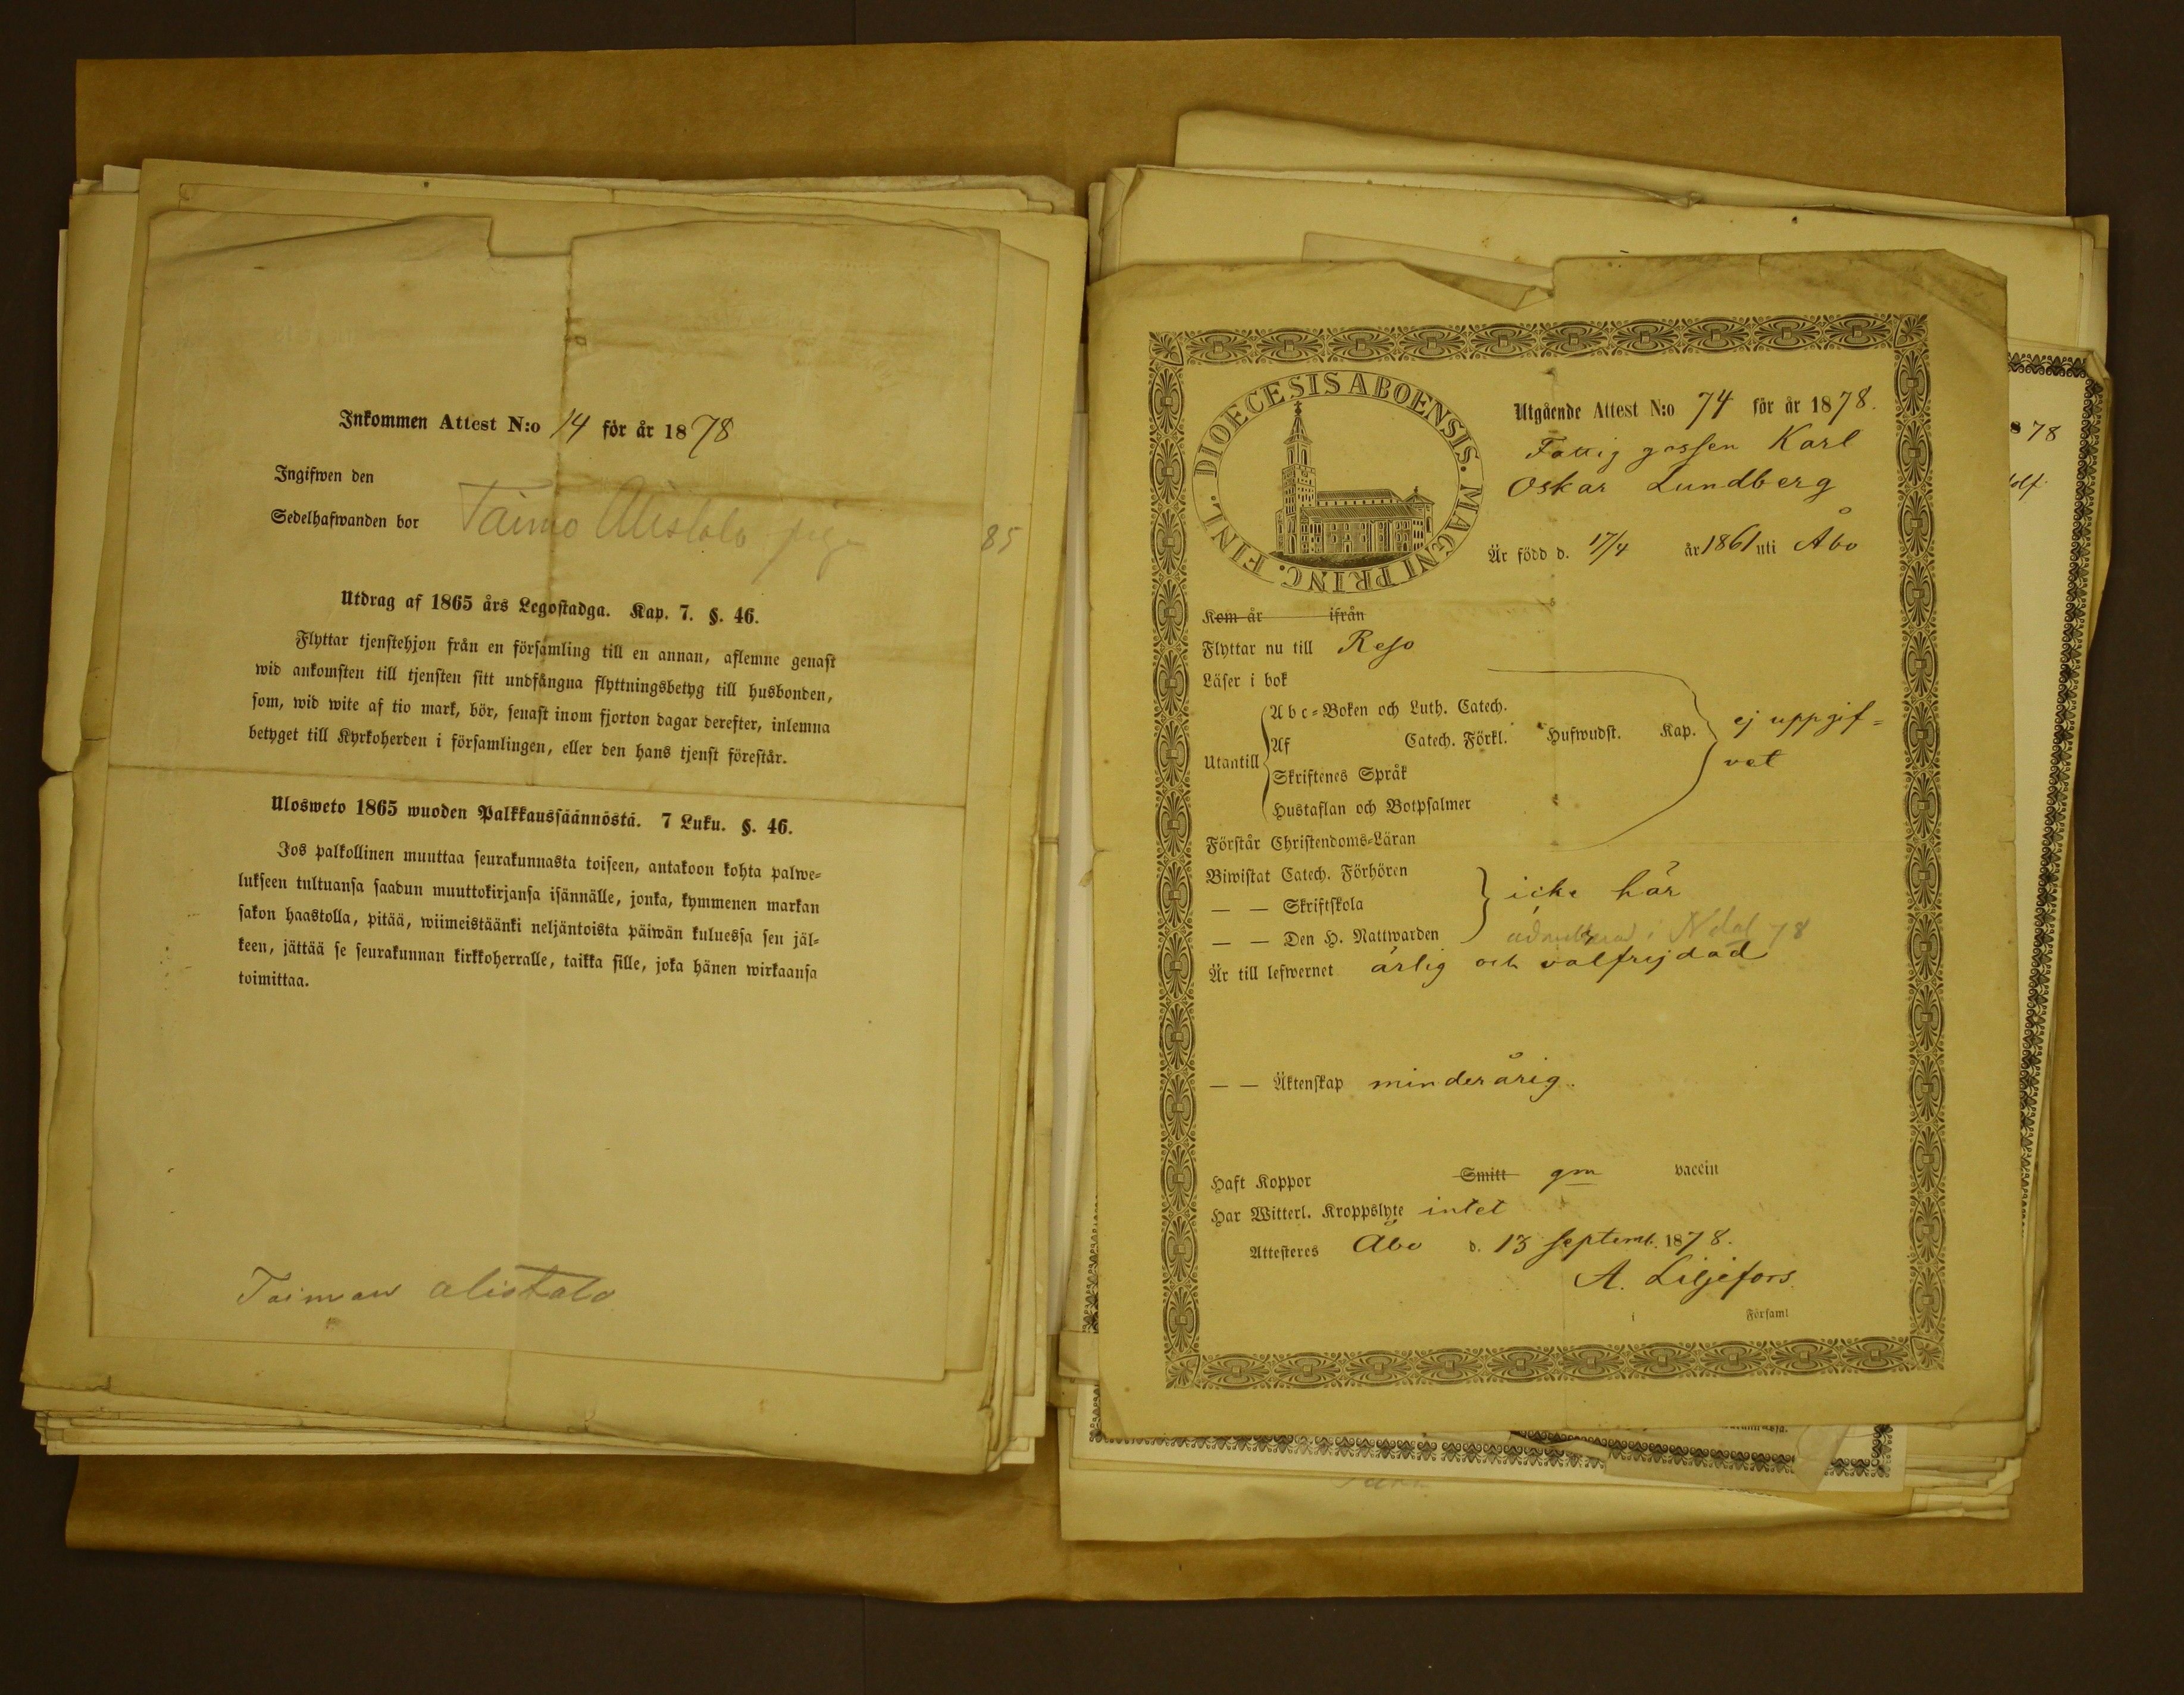 Inkommen Attest N:o 14 för år 1878
Ingifwen den
Sedelhafwanden bor Taimo Alistalo piga
85
Utdrag af 1865 års Legostadga. Kap. 7. §. 46.
Flyttar tjenstehjon från en församling till en annan, aflemne genast
wid ankomsten till tjensten sitt undfångna flyttningsbetyg till husbonden,
som, wid wite af tio mark, bör, senast inom fjorton dagar derefter, inlemna
betyget till Kyrkoherden i församlingen, eller den hans tjenst förestår.
Ulosweto 1865 wuoden Palkkaussäännöstä. 7 Luku. §. 46.
Jos palkollinen muuttaa seurakunnasta toiseen, antakoon kohta palwe-
lukseen tultuansa saadun muuttokirjansa isännälle, jonka, kymmenen markan
sakon haastolla, pitää, wiimeistäänki neljäntoista päiwän kuluessa sen jäl-
keen, jättää se seurakunnan kirkkoherralle, taikka sille, joka hänen wirkaansa
toimittaa.
Taiman alistalo
DIOECESIS ABOENSIS. MAGNI PRINC. FINL.
Utgående Attest N:o 74 för år 1878.
Fattig gossen Karl
Oskar Lundberg
Är född d. 17/4 år 1861 uti Åbo
Kom år ifrån
Flyttar nu till Reso
Läser i bok
Utantill
Abc-Boken och Luth. Catech.
Af Catech. Förkl. Hufwudst. Kap.
Skriftenes Språk
Hustaflan och Botpsalmer
ej uppgif=
vet
Förstår Christendoms-Läran
Biwistat Catech. Förhören
— — Skriftskola
— — Den H. Nattwarden
icke här
admitterad i Ndal 78
Är till lefwernet ärlig och välfrejdad
— — Äktenskap minderårig.
Haft Koppor Smitt gm vaccin
Har Witterl. Kroppslyte intet
Attesteres Åbo d. 13 septemb. 1878.
A. Liljefors
i Församl
878
olf.